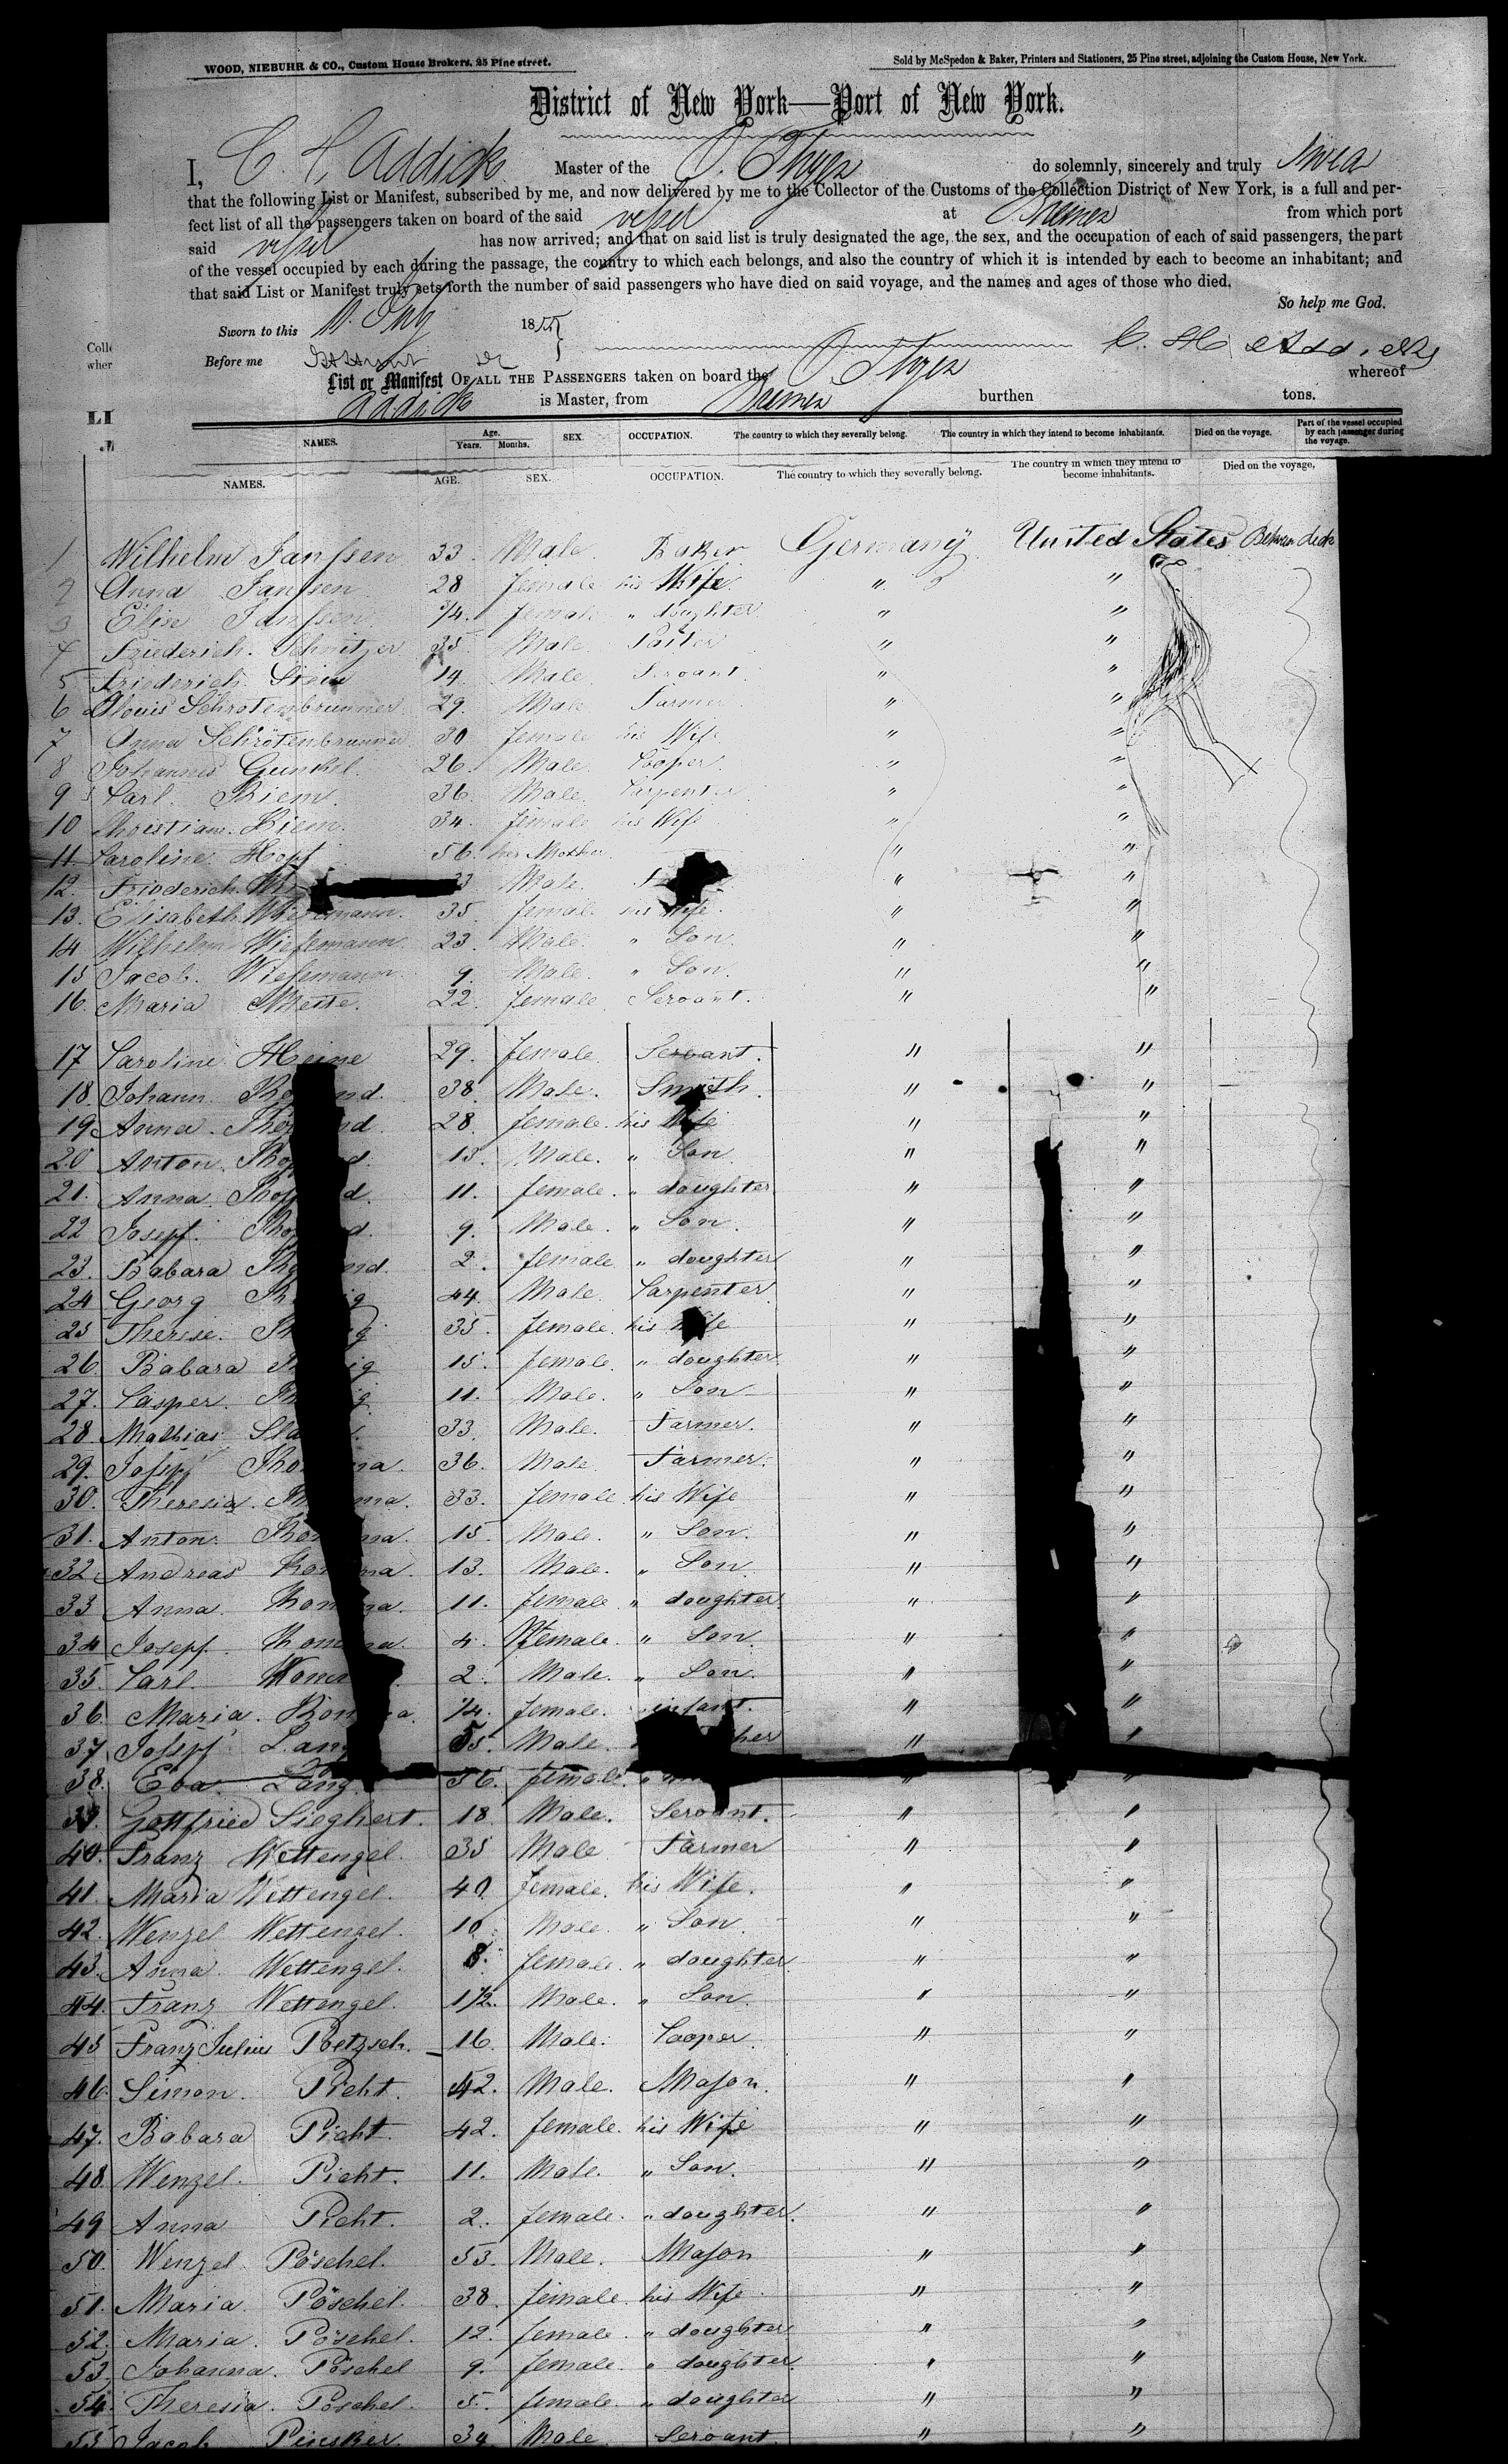 WOOD, NIEBUHR & CO., Custom House Brokers, 25 Pine street.
Sold by McSpedon & Baker, Printers and Stationers, 25 Pine street, adjoining the Custom House, New York.
District of New York—Port of New York.
I, C. H. Addicks Master of the O. Thyen do solemnly, sincerely and truly swear
that the following List or Manifest, subscribed by me, and now delivered by me to the Collector of the Customs of the Collection District of New York, is a full and per-
fect list of all the passengers taken on board of the said vessel at Bremen from which port
said vessel has now arrived; and that on said list is truly designated the age, the sex, and the occupation of each of said passengers, the part
of the vessel occupied by each during the passage, the country to which each belongs, and also the country of which it is intended by each to become an inhabitant; and
that said List or Manifest truly sets forth the number of said passengers who have died on said voyage, and the names and ages of those who died.
So help me God.
Sworn to this 1855
Before me C. H. Addicks
List or Manifest OF ALL THE PASSENGERS taken on board the O Thyen whereof
Addicks is Master, from Bremen burthen tons.
NAMES. Age. Years. Months. SEX. OCCUPATION. The country to which they severally belong. The country in which they intend to become inhabitants. Died on the voyage. Part of the vessel occupied by each passenger during the voyage.
NAMES. AGE. SEX. OCCUPATION. The country to which they severally belong. The country in which they intend to become inhabitants. Died on the voyage,
1 Wilhelm Janssen 33 Male Baker Germany United States Between deck
2 Anna Janssen 28 female his Wife " "
3 Elise Janssen 3/4 female " doughter " "
4 Friederich Schnitzer 35 Male " "
5 Friederich Stein 14 Male Servant " "
6 Alouis Schrotenbrunner 29 Male Farmer " "
7 Anna Schrotenbrunner 30 female his Wife " "
8 Johannes Gunkel 26 Male Cooper " "
9 Carl Riem 36 Male Carpenter " "
10 Christiane Riem 34 female his Wife " "
11 Caroline Hopf 56 her Mother " "
12. Friederich Male " "
13. Elisabeth 35 female his Wife " "
14 Wilhelm Wiesemann 23 Male " Son " "
15 Jacob Wiesemann 9 Male " Son " "
16. Maria Mette 22 female Servant " "
17 Caroline Heine 29. female Servant. " "
18. Johann 38 Male Smith. " "
19 Anna 28 female his Wife " "
20 Anton 13. Male. " Son " "
21. Anna 11. female " doughter " "
22 Josepf. 9. Male " Son " "
23. Babara 2. female " doughter " "
24 Georg 44. Male Carpenter " "
25 Therese. 35. female his Wife " "
26. Babara 15. female " doughter " "
27. Casper 11. Male. " Son " "
28. Mathias 33. Male. Farmer. " "
29. Josepf 36. Male Farmer. " "
30. Theresia 33. female his Wife " "
31. Anton 15. Male. " Son. " "
32 Andreas 13. Male. " Son. " "
33 Anna 11. female " doughter " "
34 Josepf. 4. Male. " Son. " "
35. Carl 2. Male. " Son. " "
36. Maria. 1/4. female. infant. " "
37. Josepf Lang 55. Male. " "
38. Eva Lang 56. female. " "
39. Gottfried Sieghert. 18. Male. Servant. " "
40. Franz Wettengel. 35 Male Farmer " "
41. Maria Wettengel. 40. female. his Wife. " "
42. Wenzel Wettengel. 10 Male " Son " "
43. Anna Wettengel. 8. female. " doughter " "
44. Franz Wettengel. 1/2. Male. " Son. " "
45 Franz Julius Poetzsch. 16. Male. Cooper " "
46. Simon. Picht. 42. Male. Mason. " "
47. Babara Picht. 42. female. his Wife " "
48. Wenzel. Picht. 11. Male. " Son. " "
49 Anna Picht. 2. female. " doughter. " "
50. Wenzel Pöschel. 53. Male. Mason " "
51. Maria. Pöschel. 38. female. his Wife " "
52. Maria. Pöschel. 12. female. " doughter " "
53. Johanna. Pöschel 9. female. " doughter. " "
54. Theresia. Pöschel. 5. female. " doughter " "
55 Jacob Pinsker. 34 Male. Servant. " "